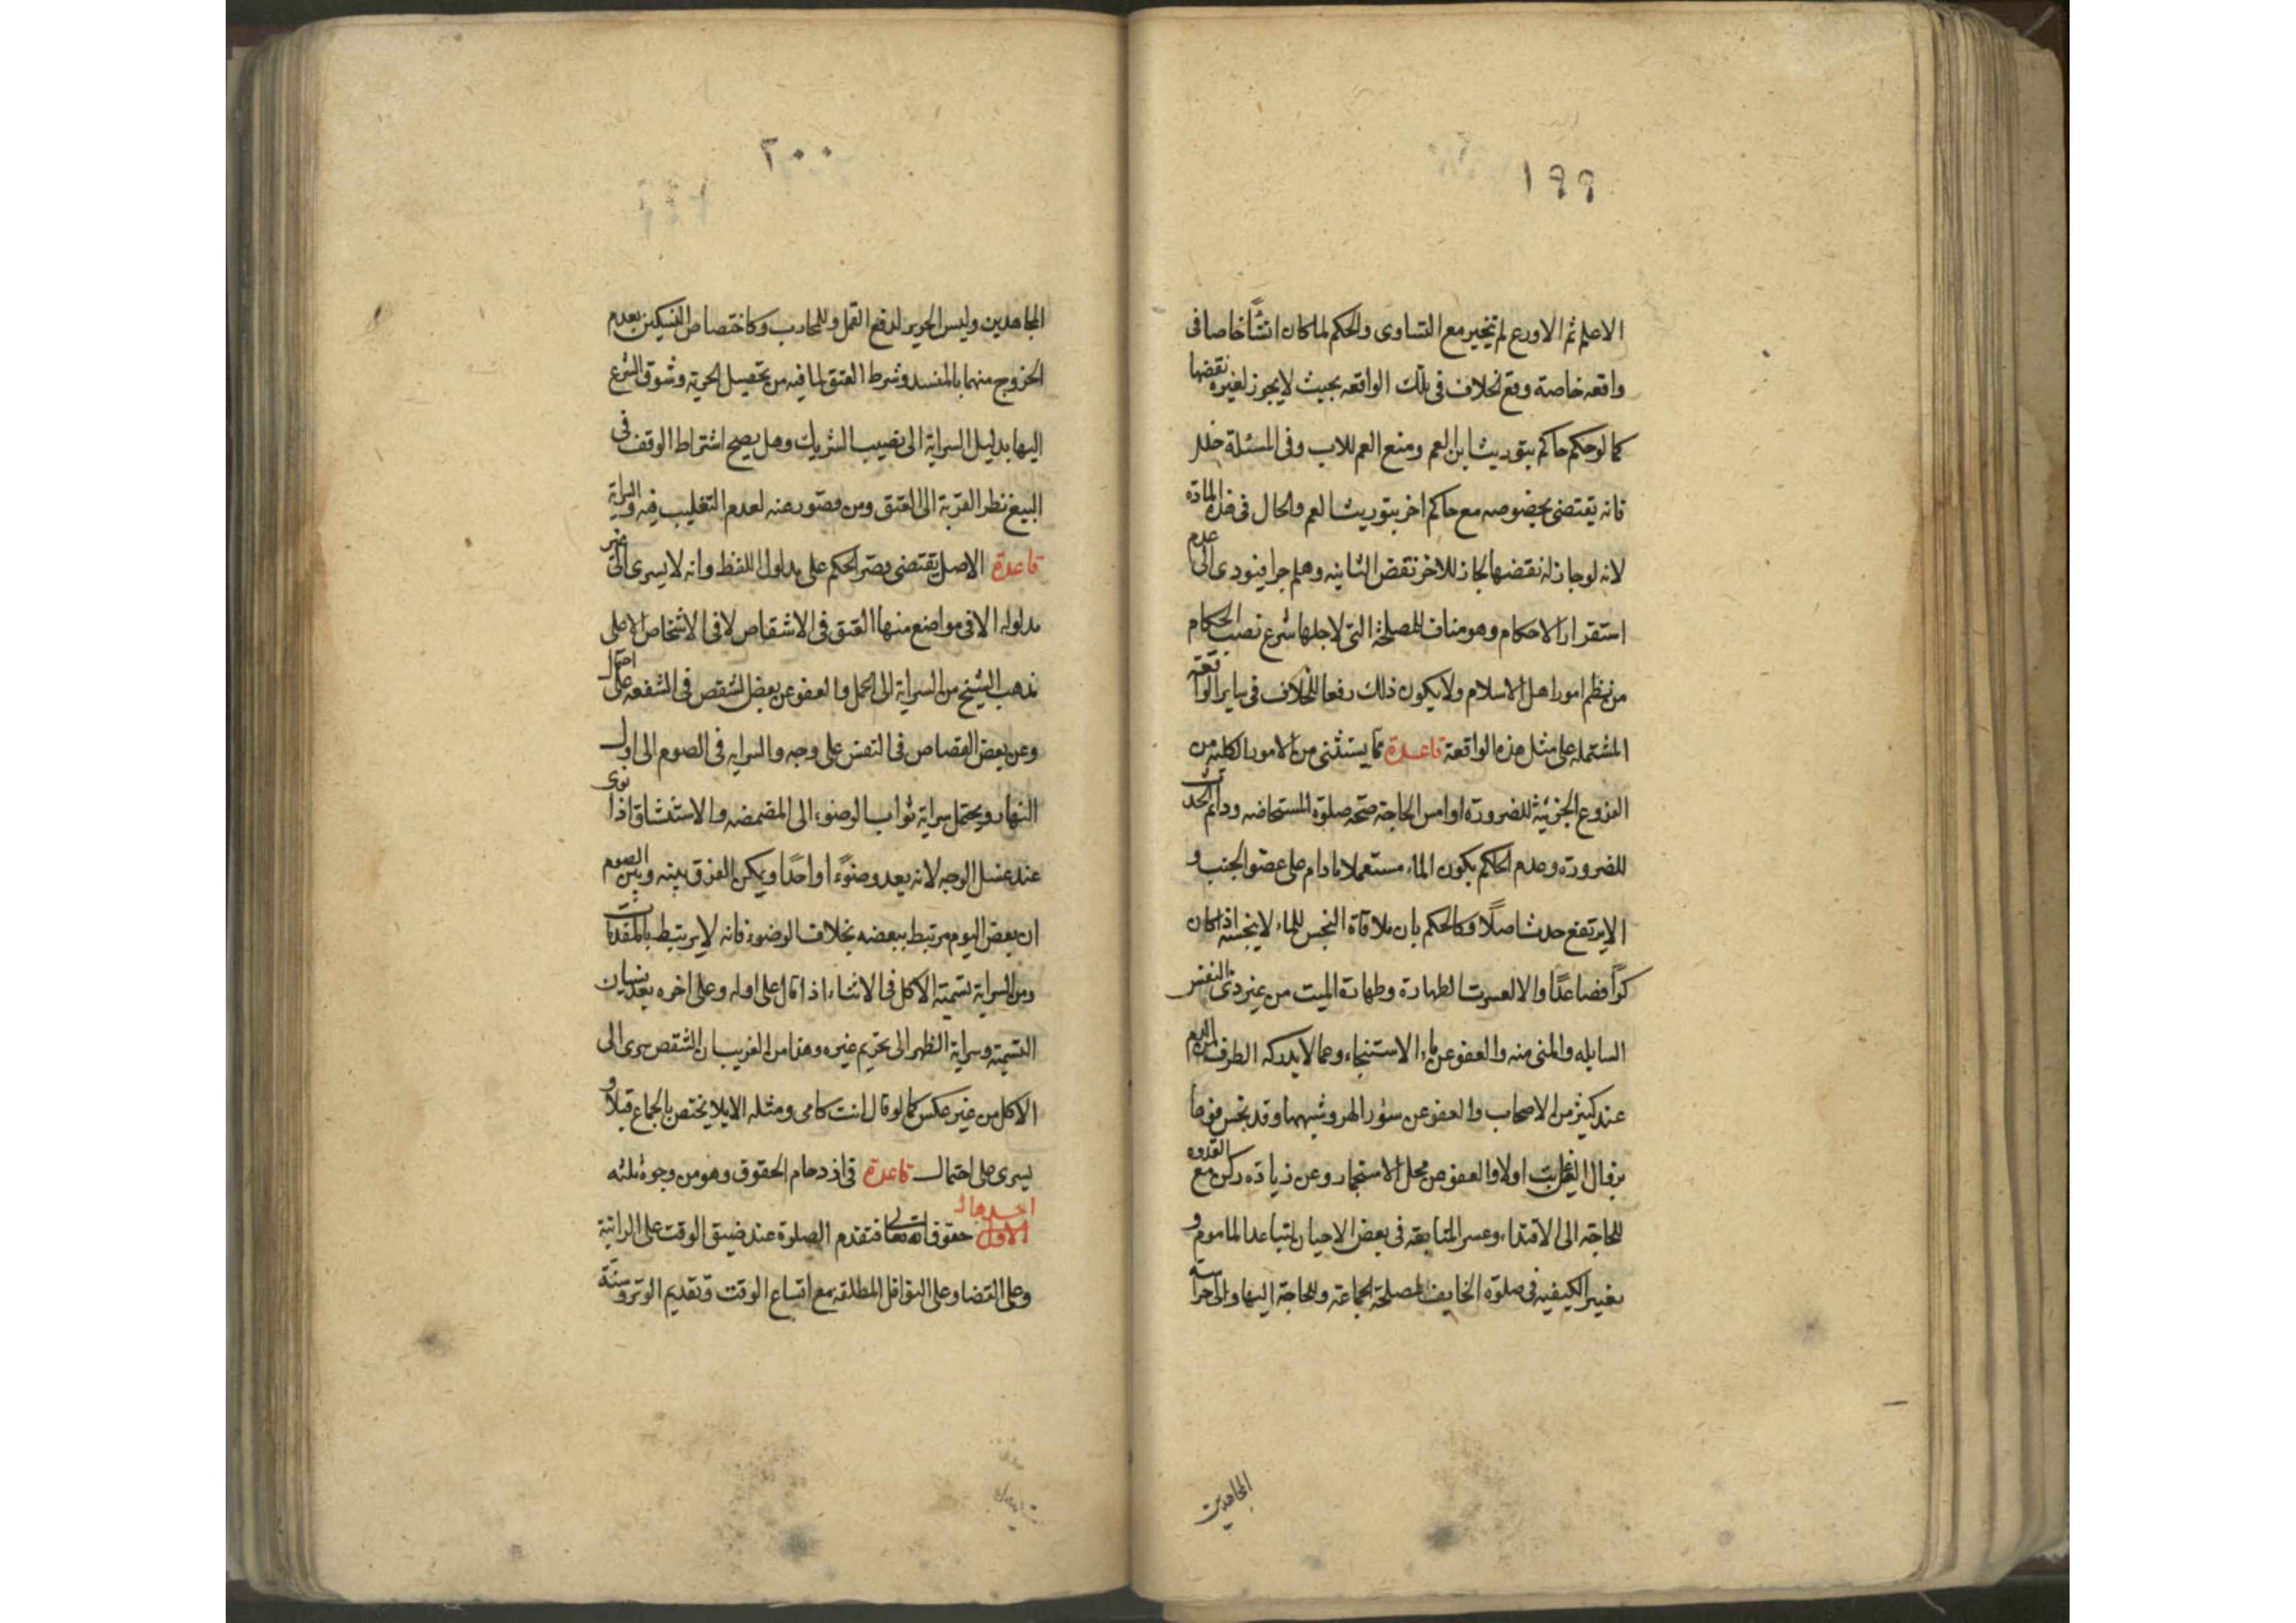 ١٩٩
الاعلم ثم الاورع ثم تخير مع التساوى والحكم لما كان انشأ خاصا فى
واقعه خاصة وقع الخلاف فى تلك الواقعه بحيث لايجوز لغيره نقضها
كما لو حكم حاكم بتوريث ابن العم ومنع العم للاب وفى المسئلة
فانه يقتضى بخصوصه مع حاكم اخر بتوريث العم والحال فى هذه المادة
لانه لو جاز له نقضها لجاز للاخر نقض الثانيه وهلم جرا فيؤدى الى عدم
استقرار الاحكام وهو مناف للمصلحة التى لاجلها شرع نصب الحكام
من نظم امور اهل الاسلام ولا يكون ذلك رفعا للخلاف فى ساير الواقعة
المشتمله على مثل هذه الواقعة قاعدة مما يستثنى من الامور الكليه من
الفروع الجزئية للضرورة او امس الحاجة صحة صلوة المستحاضه ودائم الحدث
للضرورة وعدم الحكم بكون الماء مستعملا مادام على عضو الجنب و
الا يرتفع حدث اصلا وكالحكم بان ملاقاة النجس للماء لاينجسه اذا كان
كرا فصاعدا والا لعسرت الطهارة وطهارة الميت من غير ذى النفس
السايله والمنى منه والعفو عن ماء الاستنجاء وعما لايدركه الطرف من الدم
عند كثير من الاصحاب والعفو عن سؤر الهر وشبهها وقد نجس فوها
بزوال العين غابت اولا والعفو عن محل الاستجمار وعن زيادة ركن مع القدوه
للحاجة الى الاقتداء وعسر المتابعة فى بعض الاحيان لتباعد الماموم و
تغيير الكيفيه فى صلوة الخايف لمصلحة الجماعة وللحاجة اليها والى حراسة
المجاهدين
٢٠٠
المجاهدين وليس الحرير لدفع القمل وللمحارب وكاختصاص النسكين بعدم
الخروج منهما بالمفسد وشرط العتق لما فيه من تحصيل الحرية وتشوق الشرع
اليها بدليل السراية الى نصيب الشريك وهل يصح اشتراط الوقف فى
البيع نظر القربة الى العتق ومن قصوره عنه لعدم التغليب فيه والسراية
قاعدة الاصل يقتضى قصر الحكم على مدلول اللفظ وانه لايسرى الى غير
مدلوله الا فى مواضع منها العتق فى الاشقاص لا فى الاشخاص الا على
مذهب الشيخ من السراية الى الحمل والعفو عن بعض الشقص فى الشفعه على احتمال
وعن بعض القصاص فى النفس على وجه والسرايه فى الصوم الى اول
النهار ويحتمل سراية ثواب الوضوء الى المضمضه والاستنشاق اذا نوى
عند غسل الوجه لانه يعد وضوءا واحدا ويمكن الفرق بينه وبين الصوم
ان بعض اليوم مرتبط ببعضه بخلاف الوضوء فانه لايرتبط بالمقدمات
ومن السراية تسمية الاكل فى الاثناء اذا قال على اوله وعلى اخره بعد نسيان
التسمية وسراية الظهر الى تحريم غيره وهذا من الغريب ان الشقص سرى الى
الاكل من غير عكس كما لو قال انت كامى ومثله الايلا يختص بالجماع قبلا و
يسرى على احتمال قاعدة فى ازدحام الحقوق وهو من وجوه ثلثه
احدها
الاول حقوق الله تعالى فتقدم الصلوة عند ضيق الوقت على الراتبة
وعلى القضا وعلى النوافل المطلقه مع اتساع الوقت وتقديم الوتر وسنة